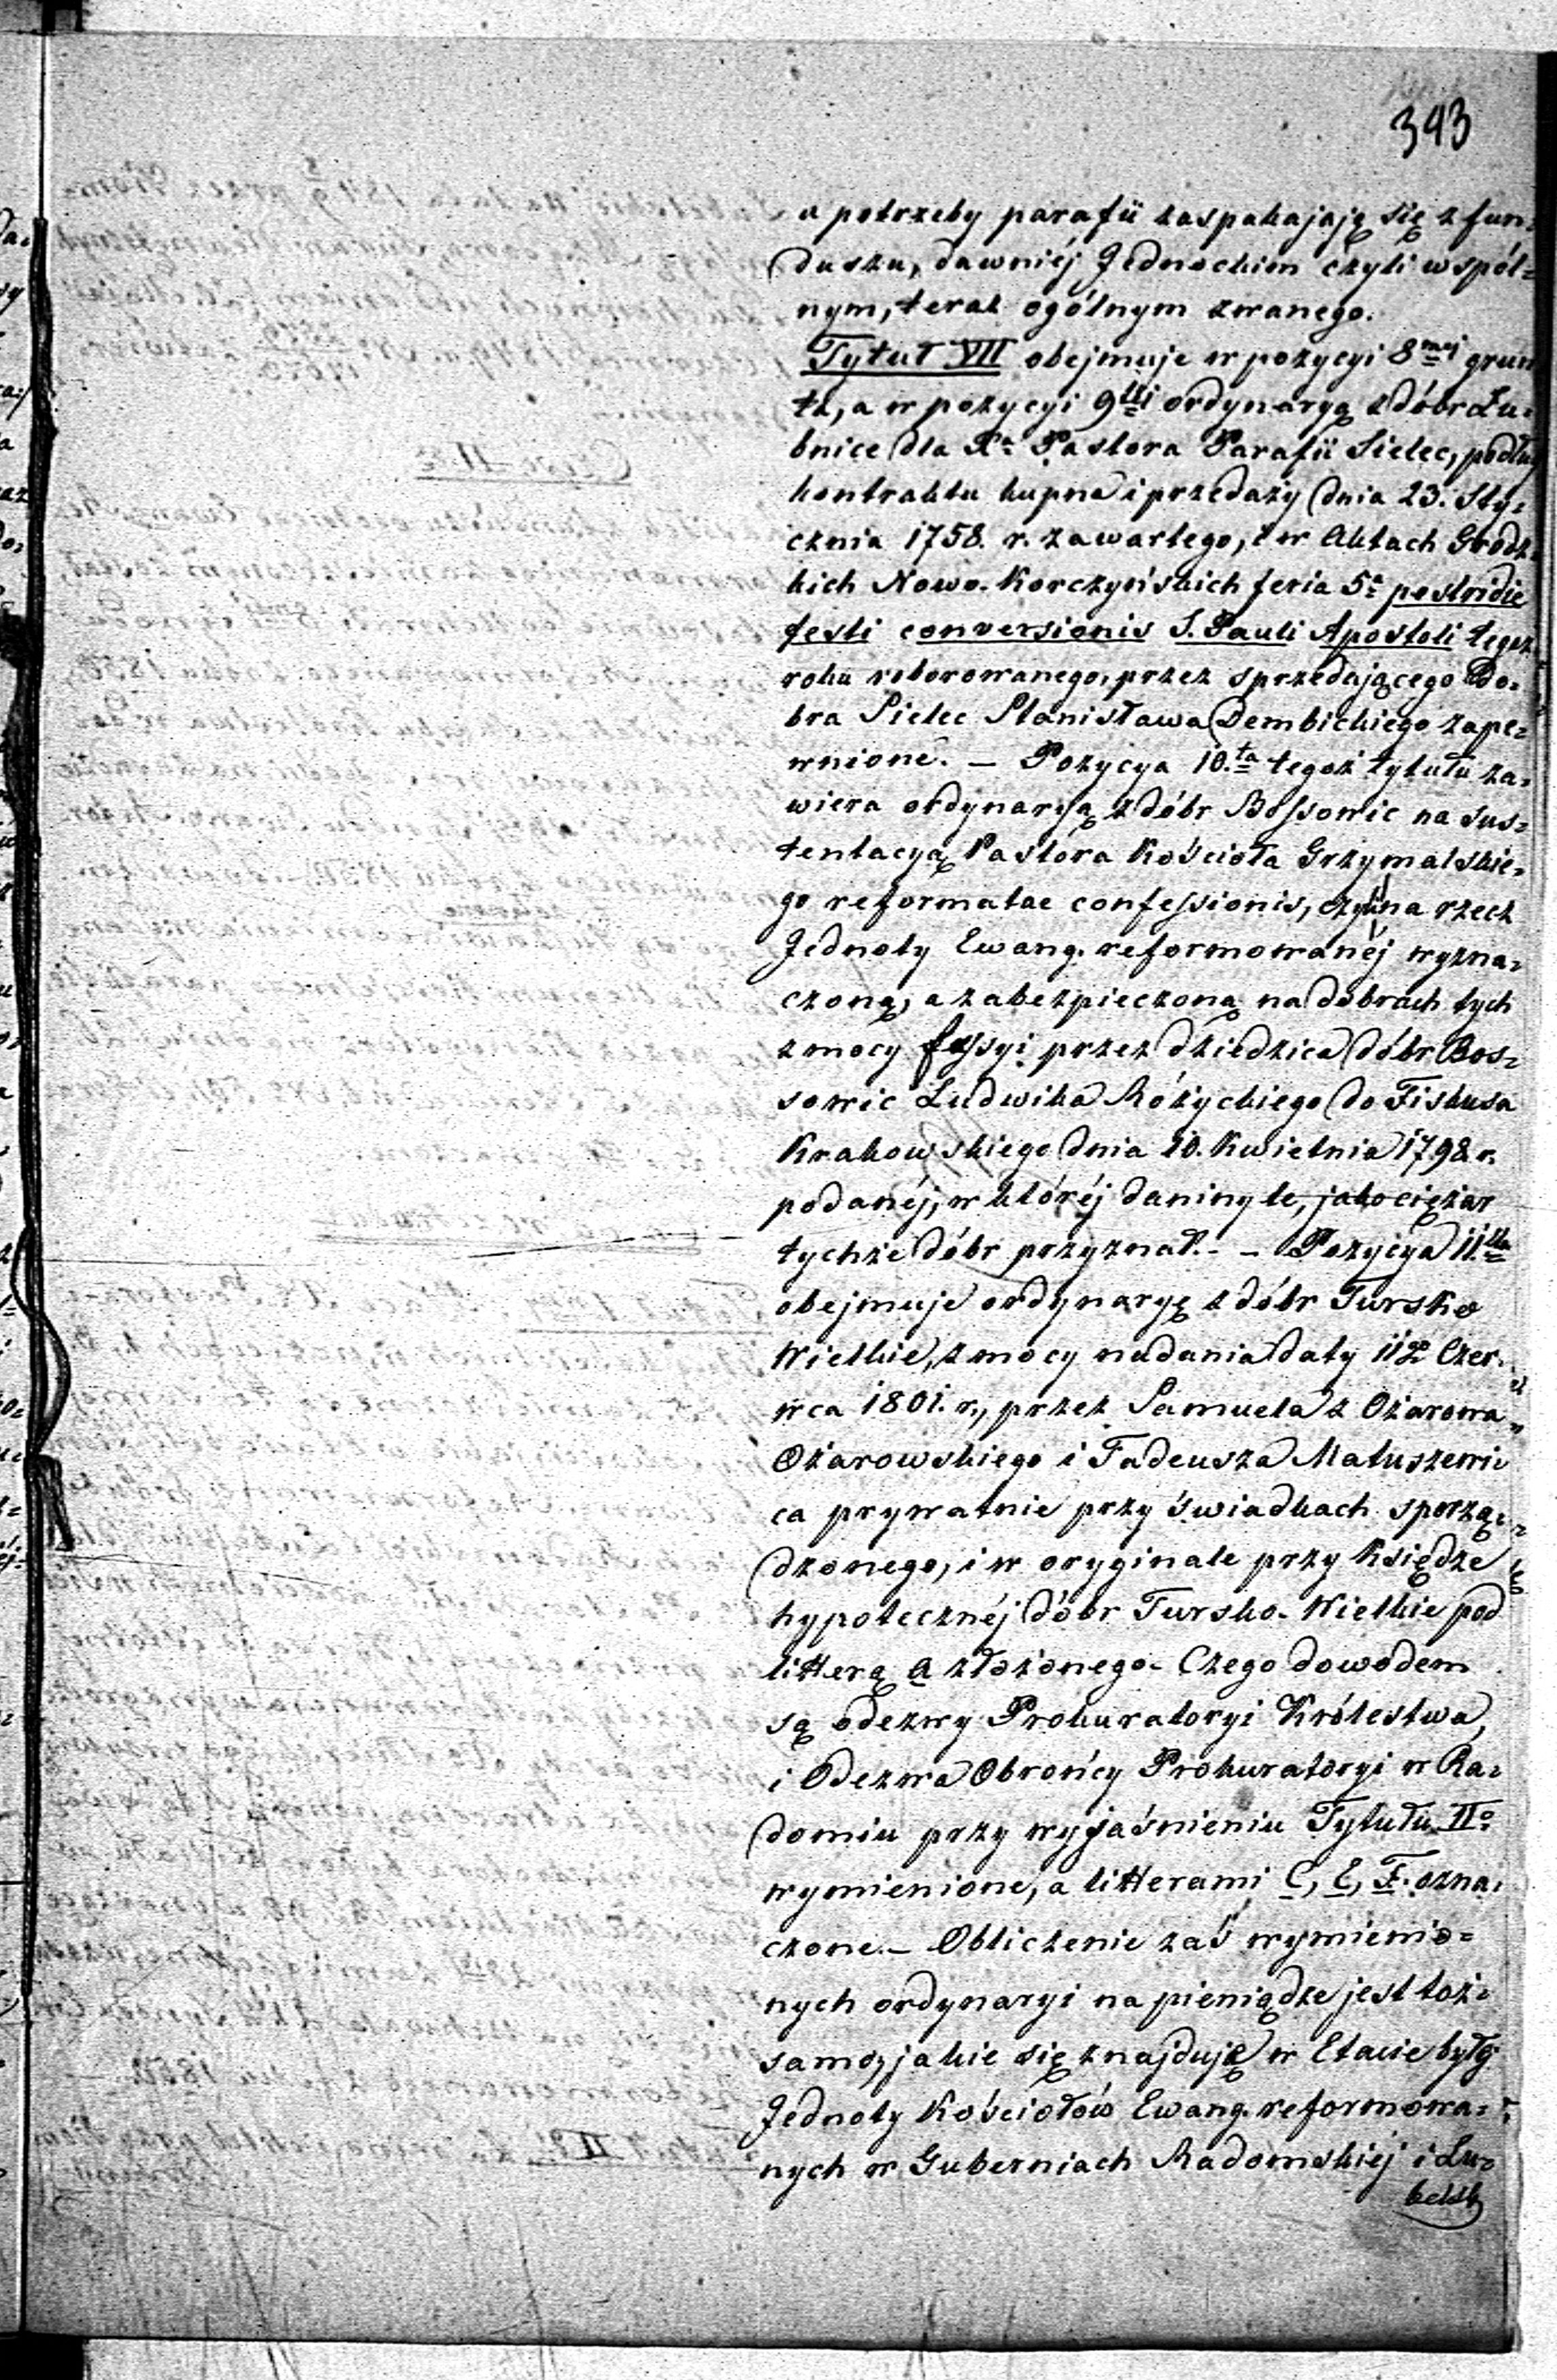 393
a potrzeby parafii zaspakajają się z fun-
duszu, dawniéj Jednockim czyli wspól=
nym, teraz ogólnym zwanego.
Tytuł VII obejmuje w pozycyi 8mej grun
ta, a w pozycyi 9tej ordynaryą z dóbr Łu-
bnice dla Xa Pastora Parafii Sielec, podług
kontraktu kupna i przedaży dnia 23. Sty-
cznia 1758. r. zawartego, i w Aktach Grodz-
kich Nowo-Korczyńskich feria 5a postridie
festi conversionis S. Pauli Apostoli tegoż
roku roborowanego, przez sprzedającego Do-
bra Sielec Stanisława Dembickiego zape=
wnione. — Pozycya 10.ta tegoż tytułu za-
wiera ordynaryą z dóbr Bossowic na sus=
tentacyą Pastora Kościoła Grzymalskie-
go reformatae confessionis, czyli na rzecz
Jednoty Ewang. reformowanéj wyzna-
czoną, a zabezpieczoną na dobrach tych
z mocy fassyi przez dziedzica dóbr Bos=
sowic Ludwika Różyckiego do Fiskusa
Krakowskiego dnia 10. Kwietnia 1798 r.
podanéj, w któréj daniny te, jako ciężar
tychże dóbr przyznał. — Pozycya 11.ta
obejmuje ordynaryę z dóbr Tursko
Wielkie, z mocy nadania daty 112 Czer-
wca 1801. r., przez Samuela z Ożarowa
Ożarowskiego i Tadeusza Matuszewi
ca prywatnie przy świadkach sporzą-
dzonego, i w oryginale przy Księdze
hypotecznéj dóbr Tursko-Wielkie pod
litterą a złożonego. Czego dowodem
są odezwy Prokuratoryi Królestwa,
i Odezwa Obrońcy Prokuratoryi w Ra=
domiu przy wyjaśnieniu Tytułu IIo
wymienione, a litterami C, E, F. ozna-
czone. — Obliczenie zaś wymienio=
nych ordynaryi na pieniądze jest toż-
samo, jakie się znajduje w Etacie byłéj
Jednoty Kościołów Ewang. reformowa-
nych w Guberniach Radomskiéj i Lu=
belsk